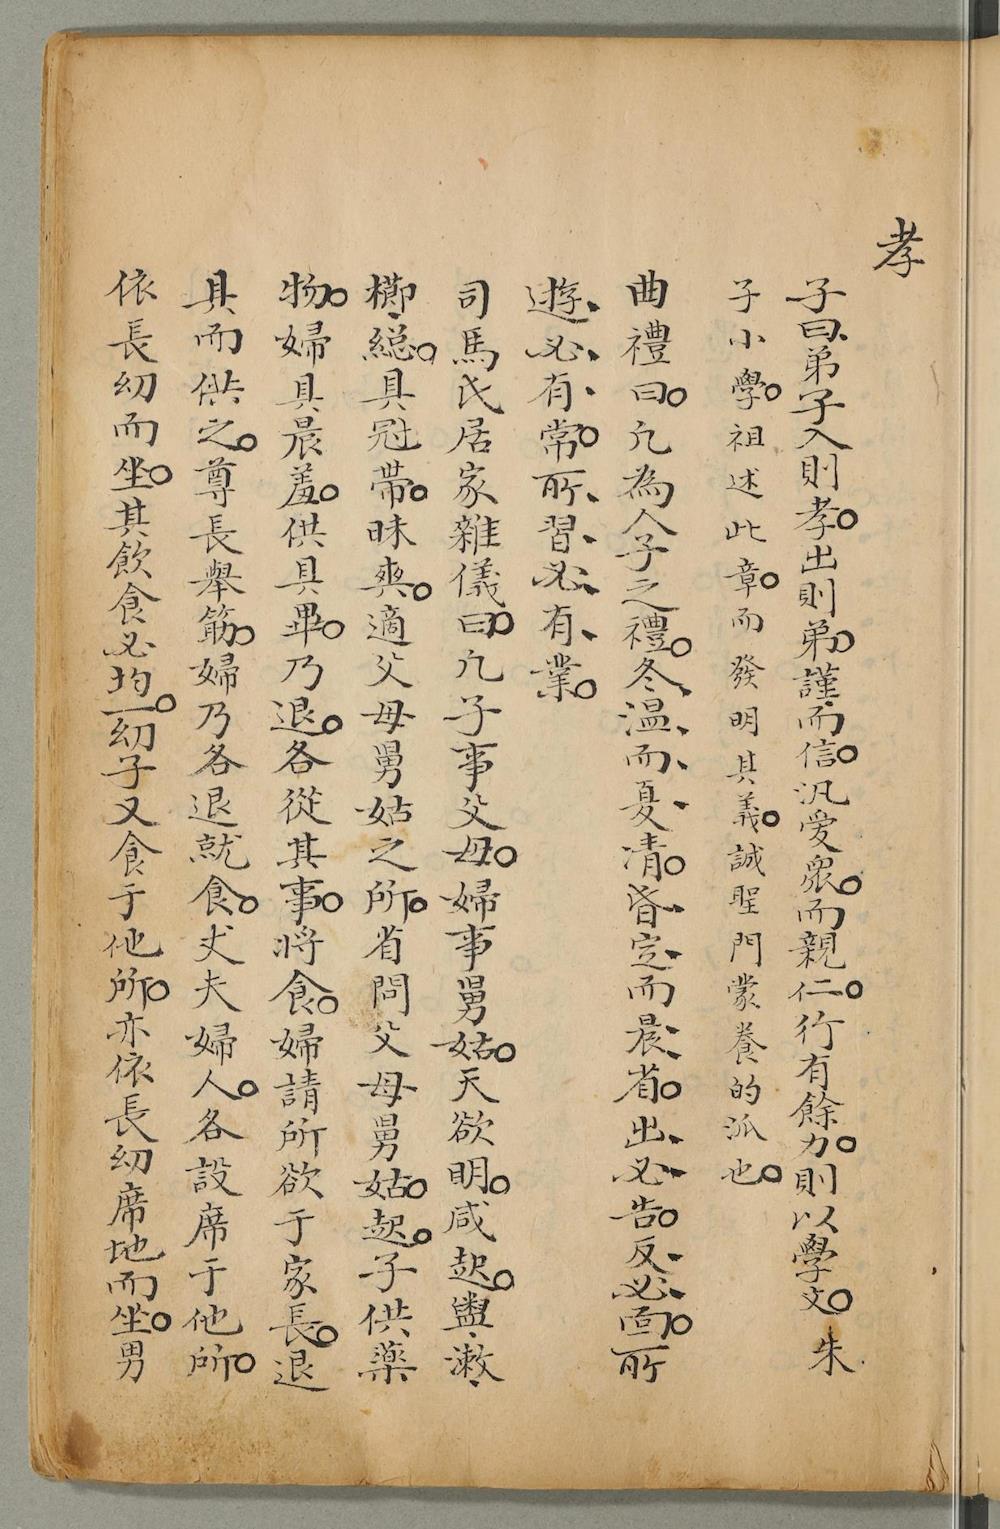 孝
子曰弟子入則孝。出則弟。謹、而信。汎愛衆。而親仁。行有餘力。則以學文。朱
子小學。祖述此章。而發明其義。誠聖門蒙養的派也。
曲禮曰。凢為人子之禮。冬、温、而、夏、凊。昏、定、而晨、省。出、必、告。反、必、面。所
遊、必、有、常。所、習、必、有、業。
司馬氏居家雜儀曰。凢子事父母。婦事舅姑。天欲明。咸起。盥、漱、
櫛、緫。具冠帶。昧爽。適父母舅姑之所。省問父母舅姑。起。子供藥
物。婦具晨羞。供具畢。乃退。各從其事。将食。婦請所欲于家長。退
具而供之。尊長舉筯。婦乃各退就食。丈夫婦人。各設席于他所。
依長幼而坐。其飲食必均。幼子又食于他所。亦依長幼席地而坐。男